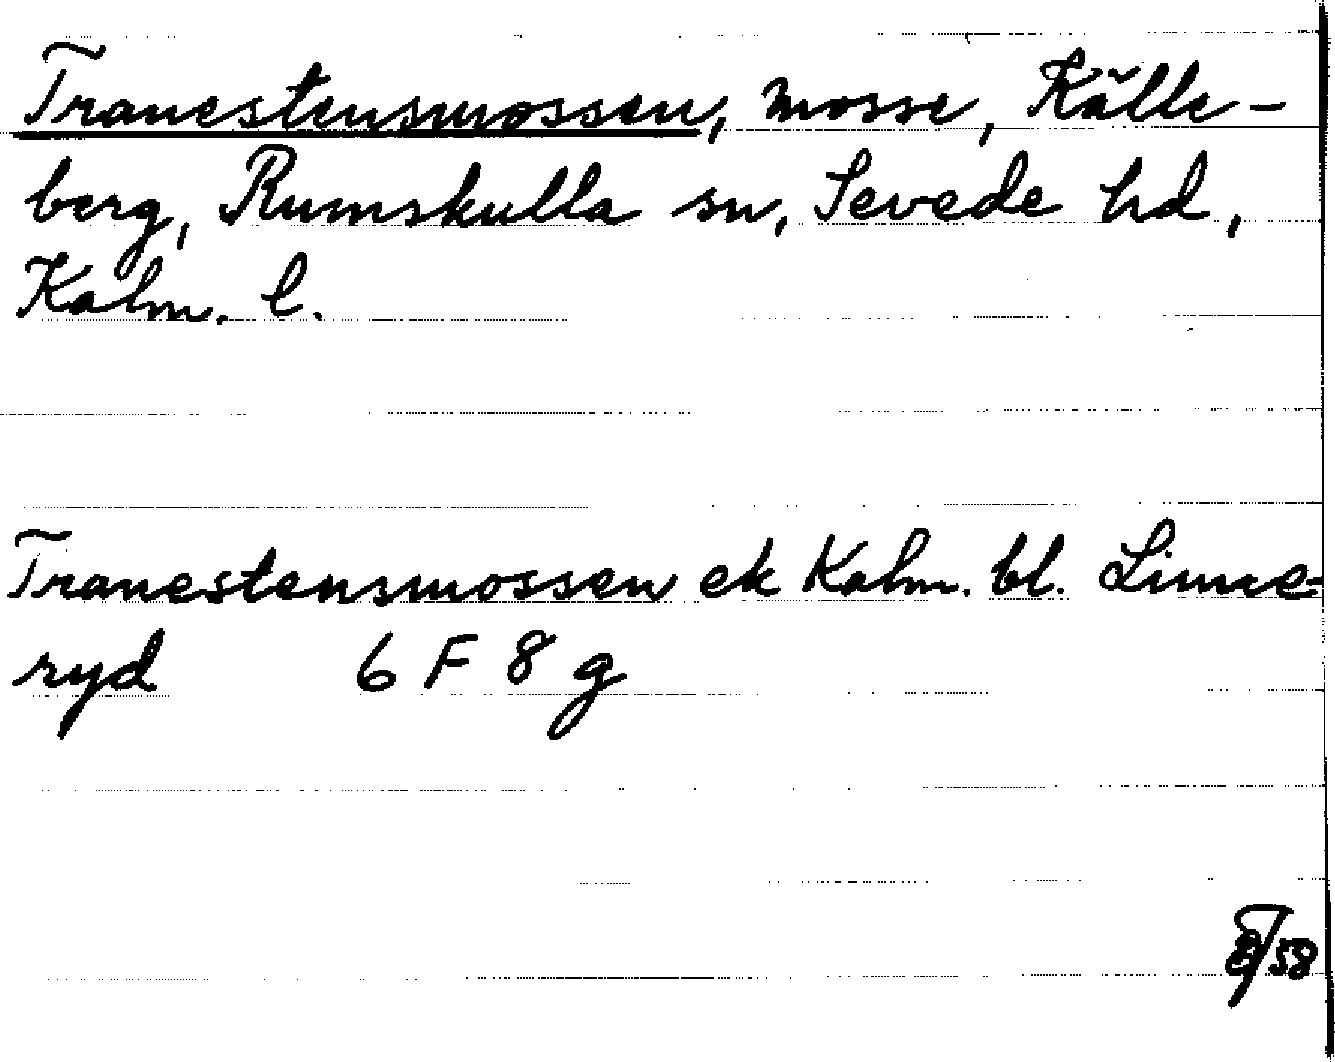 Tranestensmossen, mosse, Källe-
berg, Rumskulla sn, Sevede hd,
Kalm. l.
Tranestensmossen ek Kalm. bl. Linne-
ryd 6 F 8 g